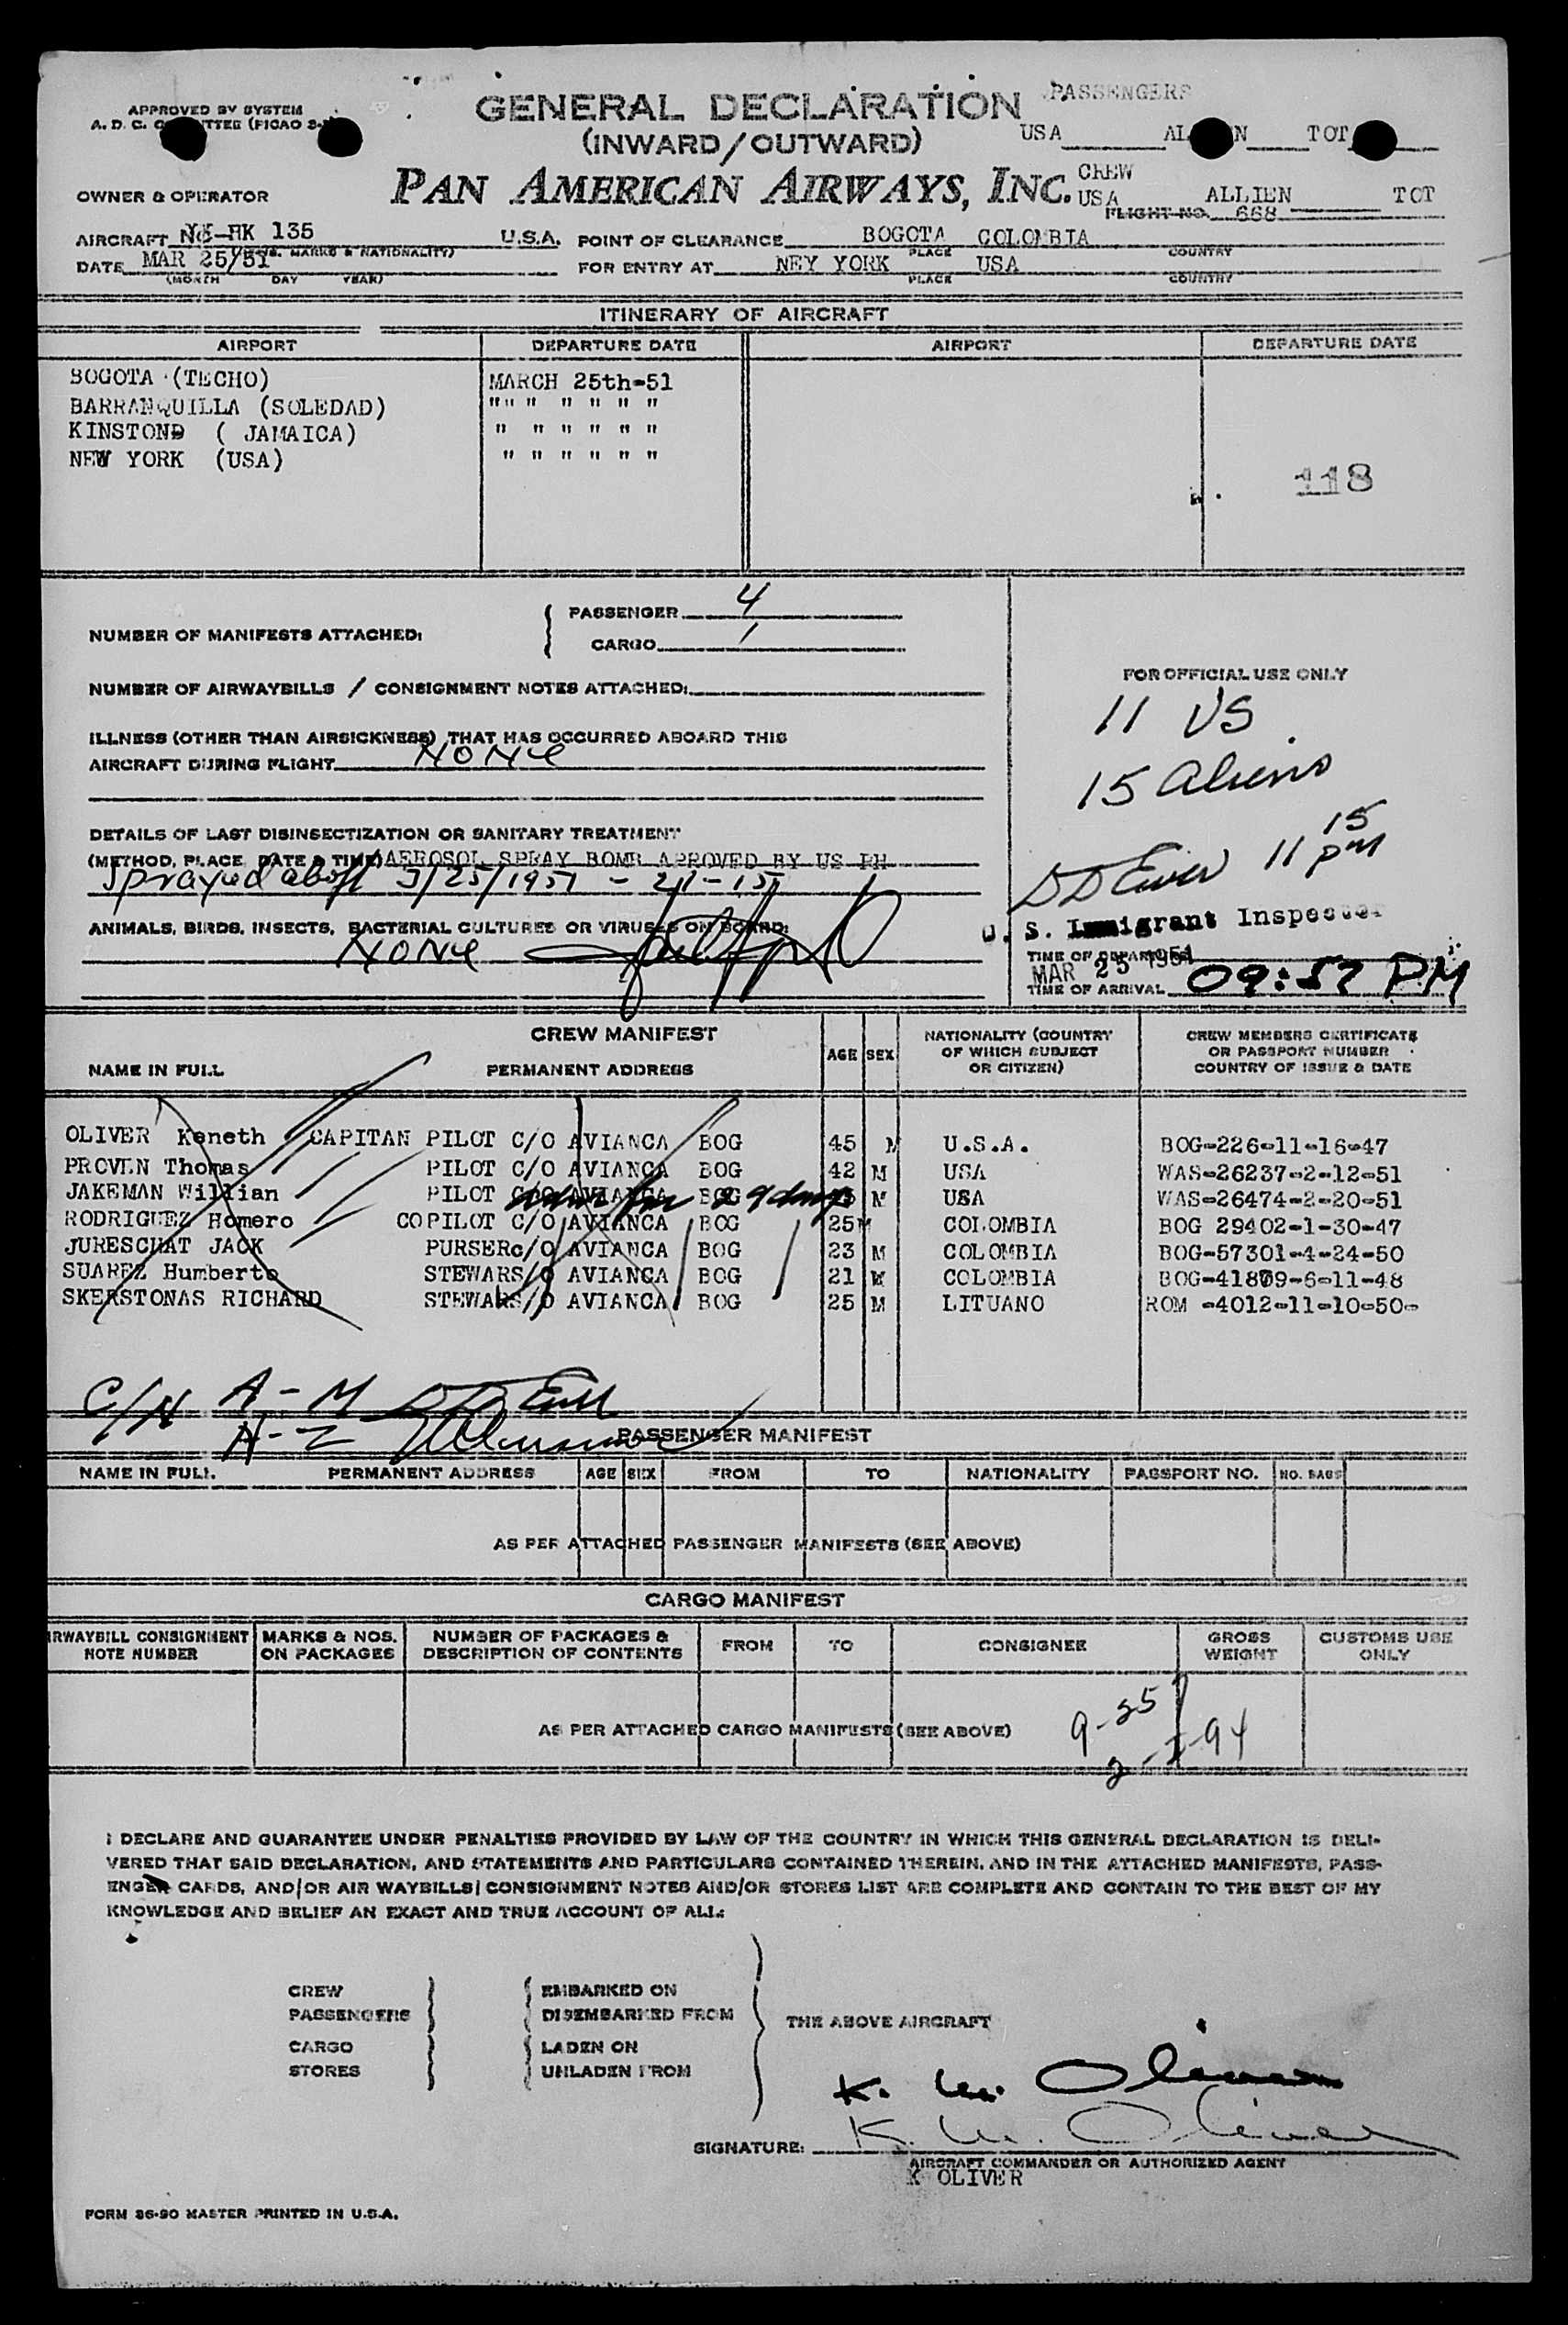 APPROVED BY SYSTEM
A. D. C.
GENERAL DECLARATION
PASSENGERS
(INWARD/OUTWARD)
USA TOT
PAN AMERICAN AIRWAYS, INC.
CREW
USA ALLIEN TOT
OWNER & OPERATOR
FLIGHT NO. 668
AIRCRAFT HK 135 U.S.A. POINT OF CLEARANCE BOGOTA COLOMBIA
MARKS & NATIONALITY) PLACE COUNTRY
DATE MAR 25/51 FOR ENTRY AT NEY YORK USA
(MONTH DAY YEAR) PLACE COUNTRY
ITINERARY OF AIRCRAFT
AIRPORT DEPARTURE DATE AIRPORT DEPARTURE DATE
BOGOTA (TECHO) MARCH 25th-51
BARRANQUILLA (SOLEDAD) " " " " " " " "
KINSTOND ( JAMAICA) " " " " " " "
NEW YORK (USA) " " " " " "
118
NUMBER OF MANIFESTS ATTACHED: PASSENGER 4
CARGO 1
NUMBER OF AIRWAYBILLS / CONSIGNMENT NOTES ATTACHED:
FOR OFFICIAL USE ONLY
11 US
15 Aliens
ILLNESS (OTHER THAN AIRSICKNESS) THAT HAS OCCURRED ABOARD THIS
AIRCRAFT DURING FLIGHT None
DETAILS OF LAST DISINSECTIZATION OR SANITARY TREATMENT
(METHOD, PLACE, DATE & TIME) AEROSOL SPRAY BOMB APROVED BY US PH
Sprayed 3/25/1951
11 15 PM
U. S. Immigrant Inspector
ANIMALS, BIRDS, INSECTS, BACTERIAL CULTURES OR VIRUSES ON BOARD:
None
TIME OF DEPARTURE
MAR 25 1951
TIME OF ARRIVAL 09:57 PM
CREW MANIFEST
NAME IN FULL PERMANENT ADDRESS AGE SEX NATIONALITY (COUNTRY OF WHICH SUBJECT OR CITIZEN) CREW MEMBERS CERTIFICATE OR PASSPORT NUMBER COUNTRY OF ISSUE & DATE
OLIVER Keneth CAPITAN PILOT C/O AVIANCA BOG 45 M U.S.A. BOG-226-11-16-47
PROVEN Thomas PILOT C/O AVIANCA BOG 42 M USA WAS-26237-2-12-51
JAKEMAN Willian PILOT C/O AVIANCA BOG M USA WAS-26474-2-20-51
RODRIGUEZ Homero COPILOT C/O AVIANCA BOG 25 M COLOMBIA BOG 29402-1-30-47
JURESCHAT JACK PURSERc/O AVIANCA BOG 23 M COLOMBIA BOG-57301-4-24-50
SUAREZ Humberto STEWARS/O AVIANCA BOG 21 M COLOMBIA BOG-41809-6-11-48
SKERSTONAS RICHARD STEWARS/O AVIANCA BOG 25 M LITUANO ROM -4012-11-10-50-
C/N A - M
N - Z
PASSENGER MANIFEST
NAME IN FULL PERMANENT ADDRESS AGE SEX FROM TO NATIONALITY PASSPORT NO. NO. BAGS
AS PER ATTACHED PASSENGER MANIFESTS (SEE ABOVE)
CARGO MANIFEST
AIRWAYBILL CONSIGNMENT NOTE NUMBER MARKS & NOS. ON PACKAGES NUMBER OF PACKAGES & DESCRIPTION OF CONTENTS FROM TO CONSIGNEE GROSS WEIGHT CUSTOMS USE ONLY
AS PER ATTACHED CARGO MANIFESTS (SEE ABOVE)
I DECLARE AND GUARANTEE UNDER PENALTIES PROVIDED BY LAW OF THE COUNTRY IN WHICH THIS GENERAL DECLARATION IS DELI-
VERED THAT SAID DECLARATION, AND STATEMENTS AND PARTICULARS CONTAINED THEREIN, AND IN THE ATTACHED MANIFESTS, PASS-
ENGER CARDS, AND/OR AIR WAYBILLS/CONSIGNMENT NOTES AND/OR STORES LIST ARE COMPLETE AND CONTAIN TO THE BEST OF MY
KNOWLEDGE AND BELIEF AN EXACT AND TRUE ACCOUNT OF ALL:
CREW EMBARKED ON
PASSENGERS DISEMBARKED FROM
THE ABOVE AIRCRAFT
CARGO LADEN ON
STORES UNLADEN FROM
K. W. Oliver
SIGNATURE: K. W. Oliver
AIRCRAFT COMMANDER OR AUTHORIZED AGENT
K OLIVER
FORM 36-90 MASTER PRINTED IN U.S.A.